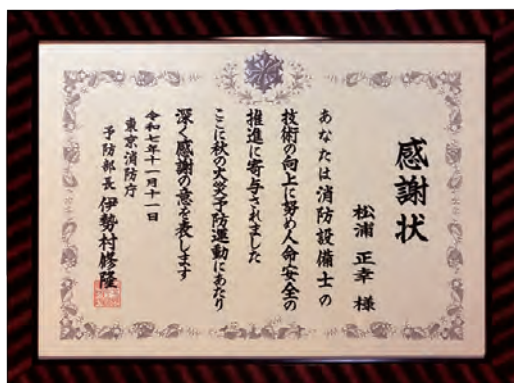 感謝状
松浦 正幸 様
あなたは消防設備士の
技術の向上に努め人命安全の
推進に寄与されました
ここに秋の火災予防運動にあたり
深く感謝の意を表します
令和七年十一月十一日
東京消防庁
予防部長 伊勢村修隆